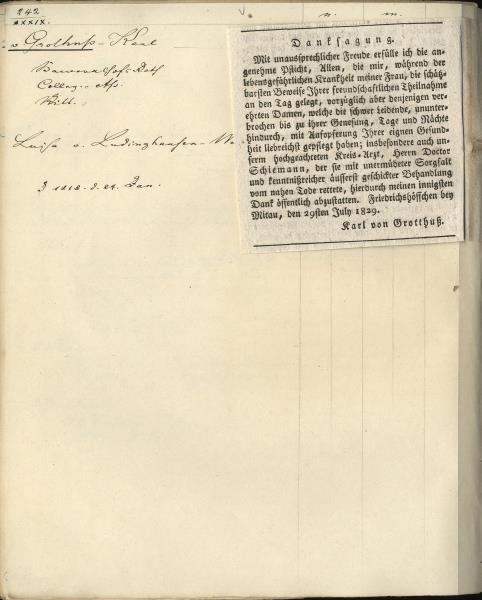 242
XXXIX.
v. Grothuß - Karl
Colleg. Ass.
Luise v. Ludinghausen-W
1818. d. 24. Jan.
Danksagung.
Mit unaussprechlicher Freude erfülle ich die an-
genehme Pflicht, Allen, die mir, während der
lebensgefährlichen Krankheit meiner Frau, die schätz-
barsten Beweise Ihrer freundschaftlichen Theilnahme
an den Tag gelegt, vorzüglich aber denjenigen ver-
ehrten Damen, welche die schwer Leidende, ununter-
brochen bis zu ihrer Genesung, Tage und Nächte
hindurch, mit Aufopferung Ihrer eignen Gesund-
heit liebreichst gepflegt haben; insbesondere auch un-
serm hochgeachteten Kreis-Arzt, Herrn Doctor
Schiemann, der sie mit unermüdeter Sorgfalt
und kenntnißreicher äusserst geschickter Behandlung
vom nahen Tode rettete, hierdurch meinen innigsten
Dank öffentlich abzustatten. Friedrichshöfschen bey
Mitau, den 29sten July 1829.
Karl von Grotthuß.